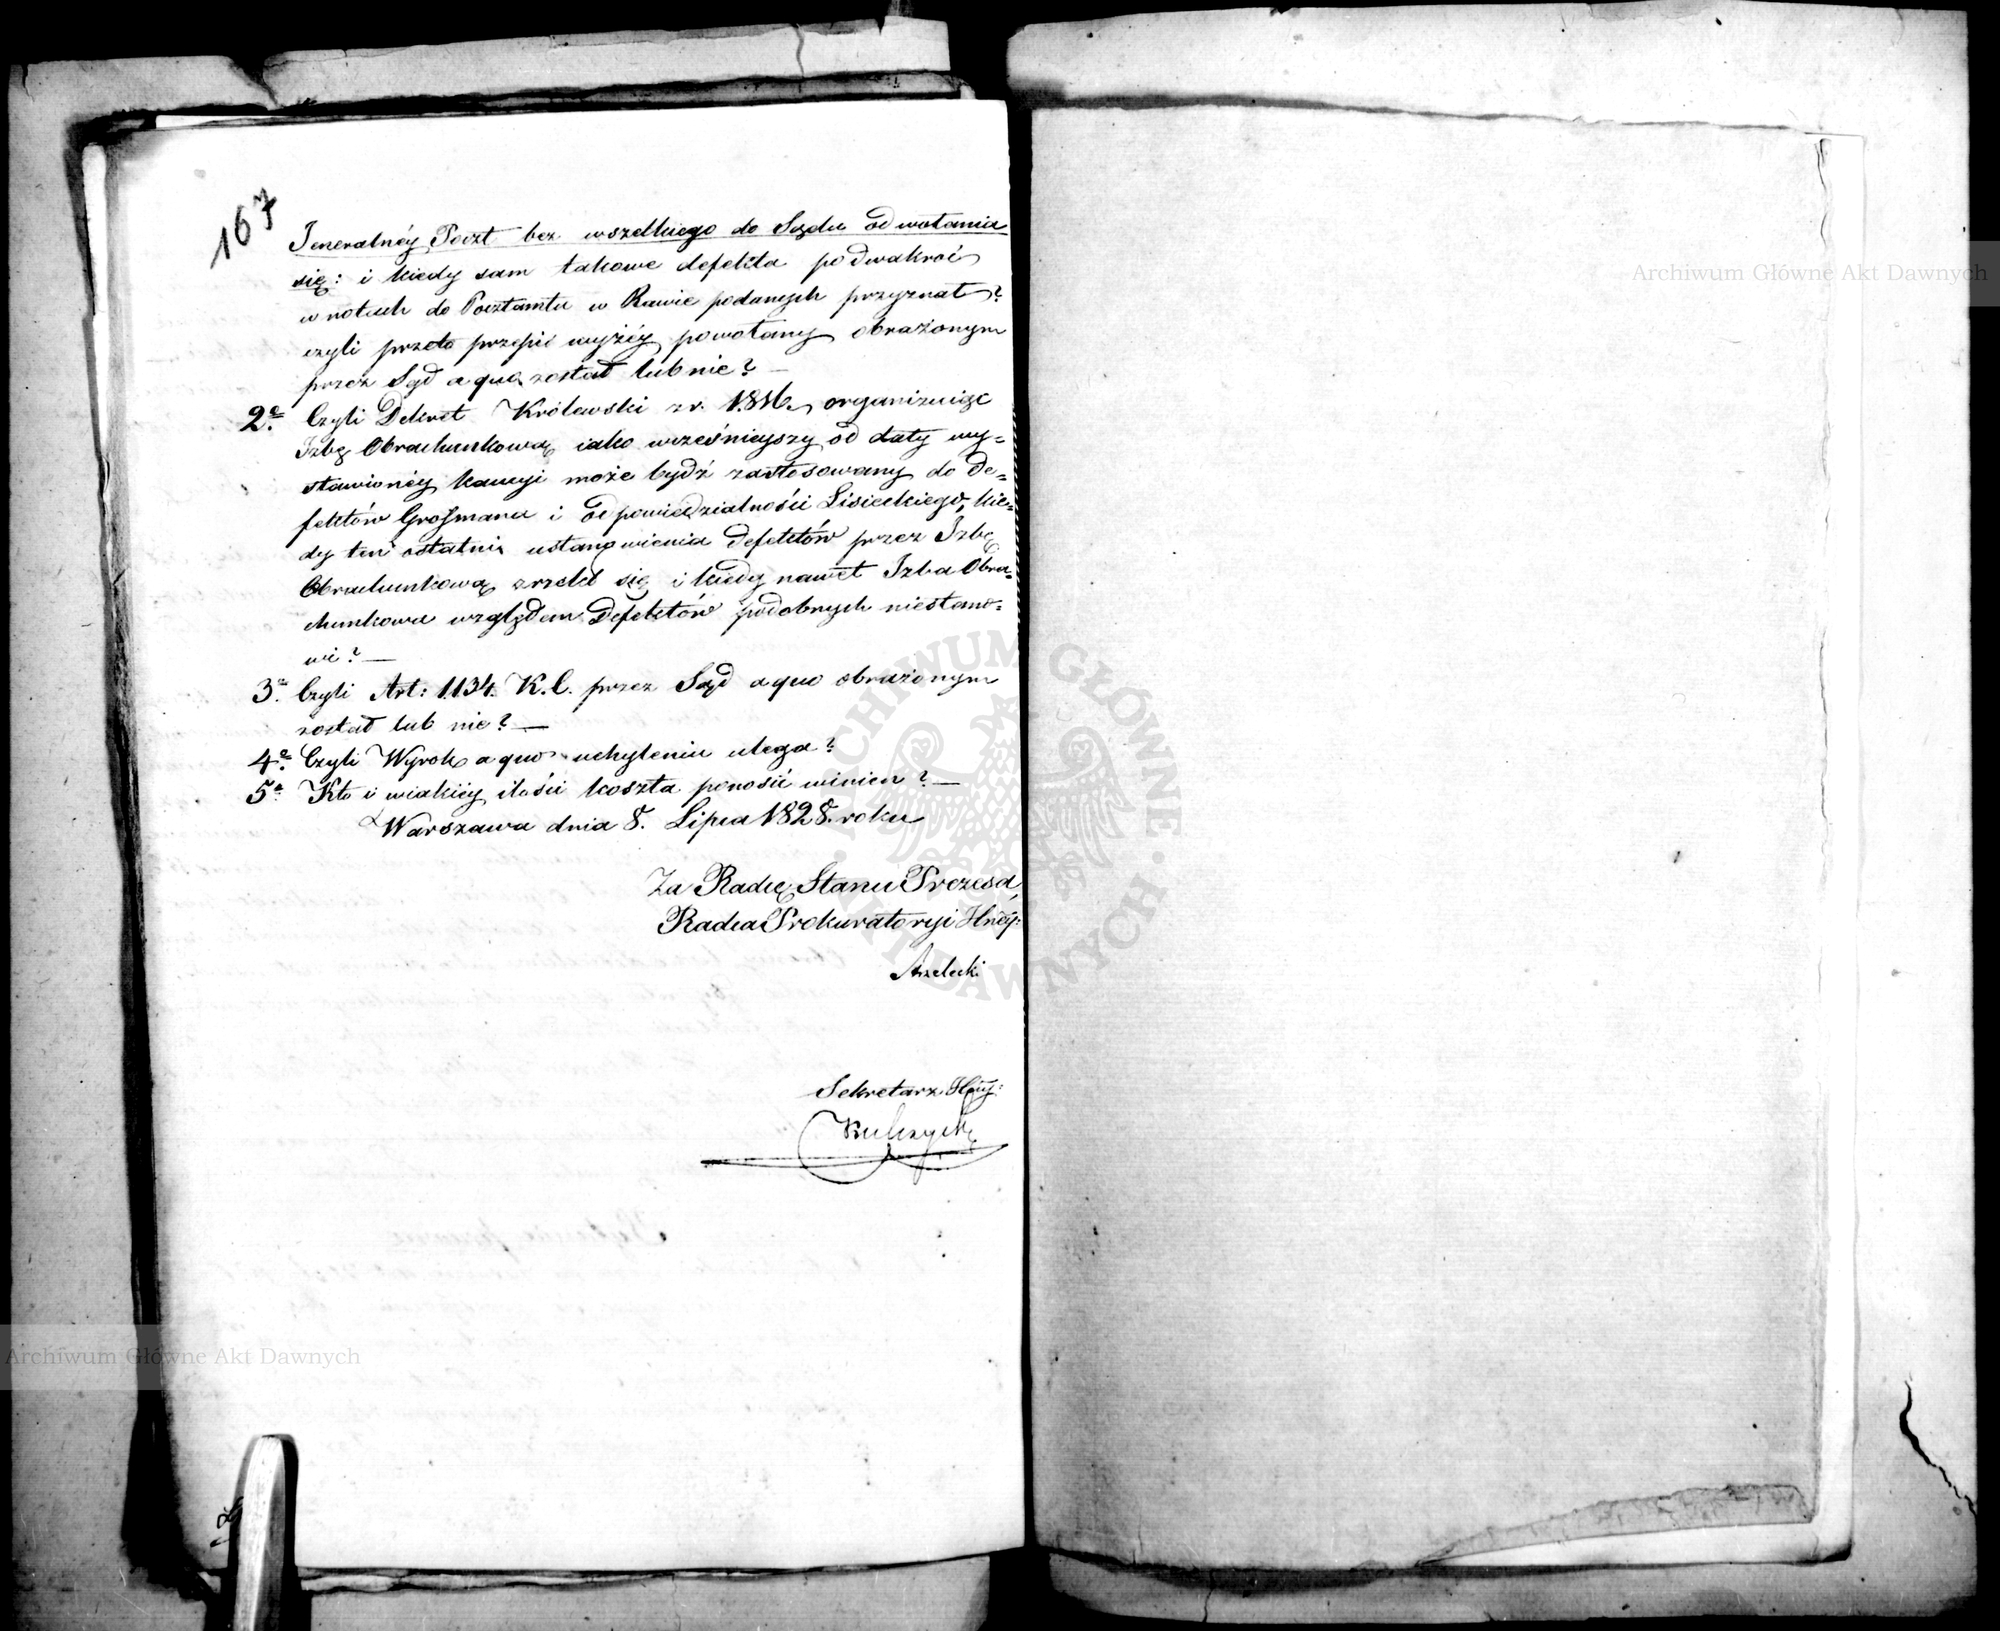 167
Jeneralnéy Poczt bez wszelkiego do Sądu odwołania
się: i kiedy sam takowe defekta podwakroć
w notach do Pocztamtu w Rawie podanych przyznał?
czyli przeto przepis wyżéy powołany obrażonym
przez Sąd a quo został lub nie? —
2e. Czyli Dekret Królewski z r. 1816. organizuiąc
Izbę Obrachunkową, iako wcześnieyszy od daty wy=
stawionéy kaucyi może bydź zastosowany do De=
fektów Grossmana i Odpowiedzialności Lisieckiego, kie=
dy ten ostatni ustanowienia Defektów przez Izbę
Obrachunkową zrzekł się i kiedy nawet Izba Obra=
chunkowa względem Defektów podobnych niestano=
wi? —
3e. Czyli Art: 1134. K.C. przez Sąd a quo obrażonym
został lub nie? —
4e. Czyli Wyrok a quo uchyleniu ulega?
5e. Kto i w iakiéy ilości koszta ponosić winien? —
Warszawa dnia 8. Lipca 1828. roku
Za Radcę Stanu Prezesa
Radca Prokuratoryi
Sekretarz
Archiwum Główne Akt Dawnych
Archiwum Główne Akt Dawnych
ARCHIWUM GŁÓWNE AKT DAWNYCH